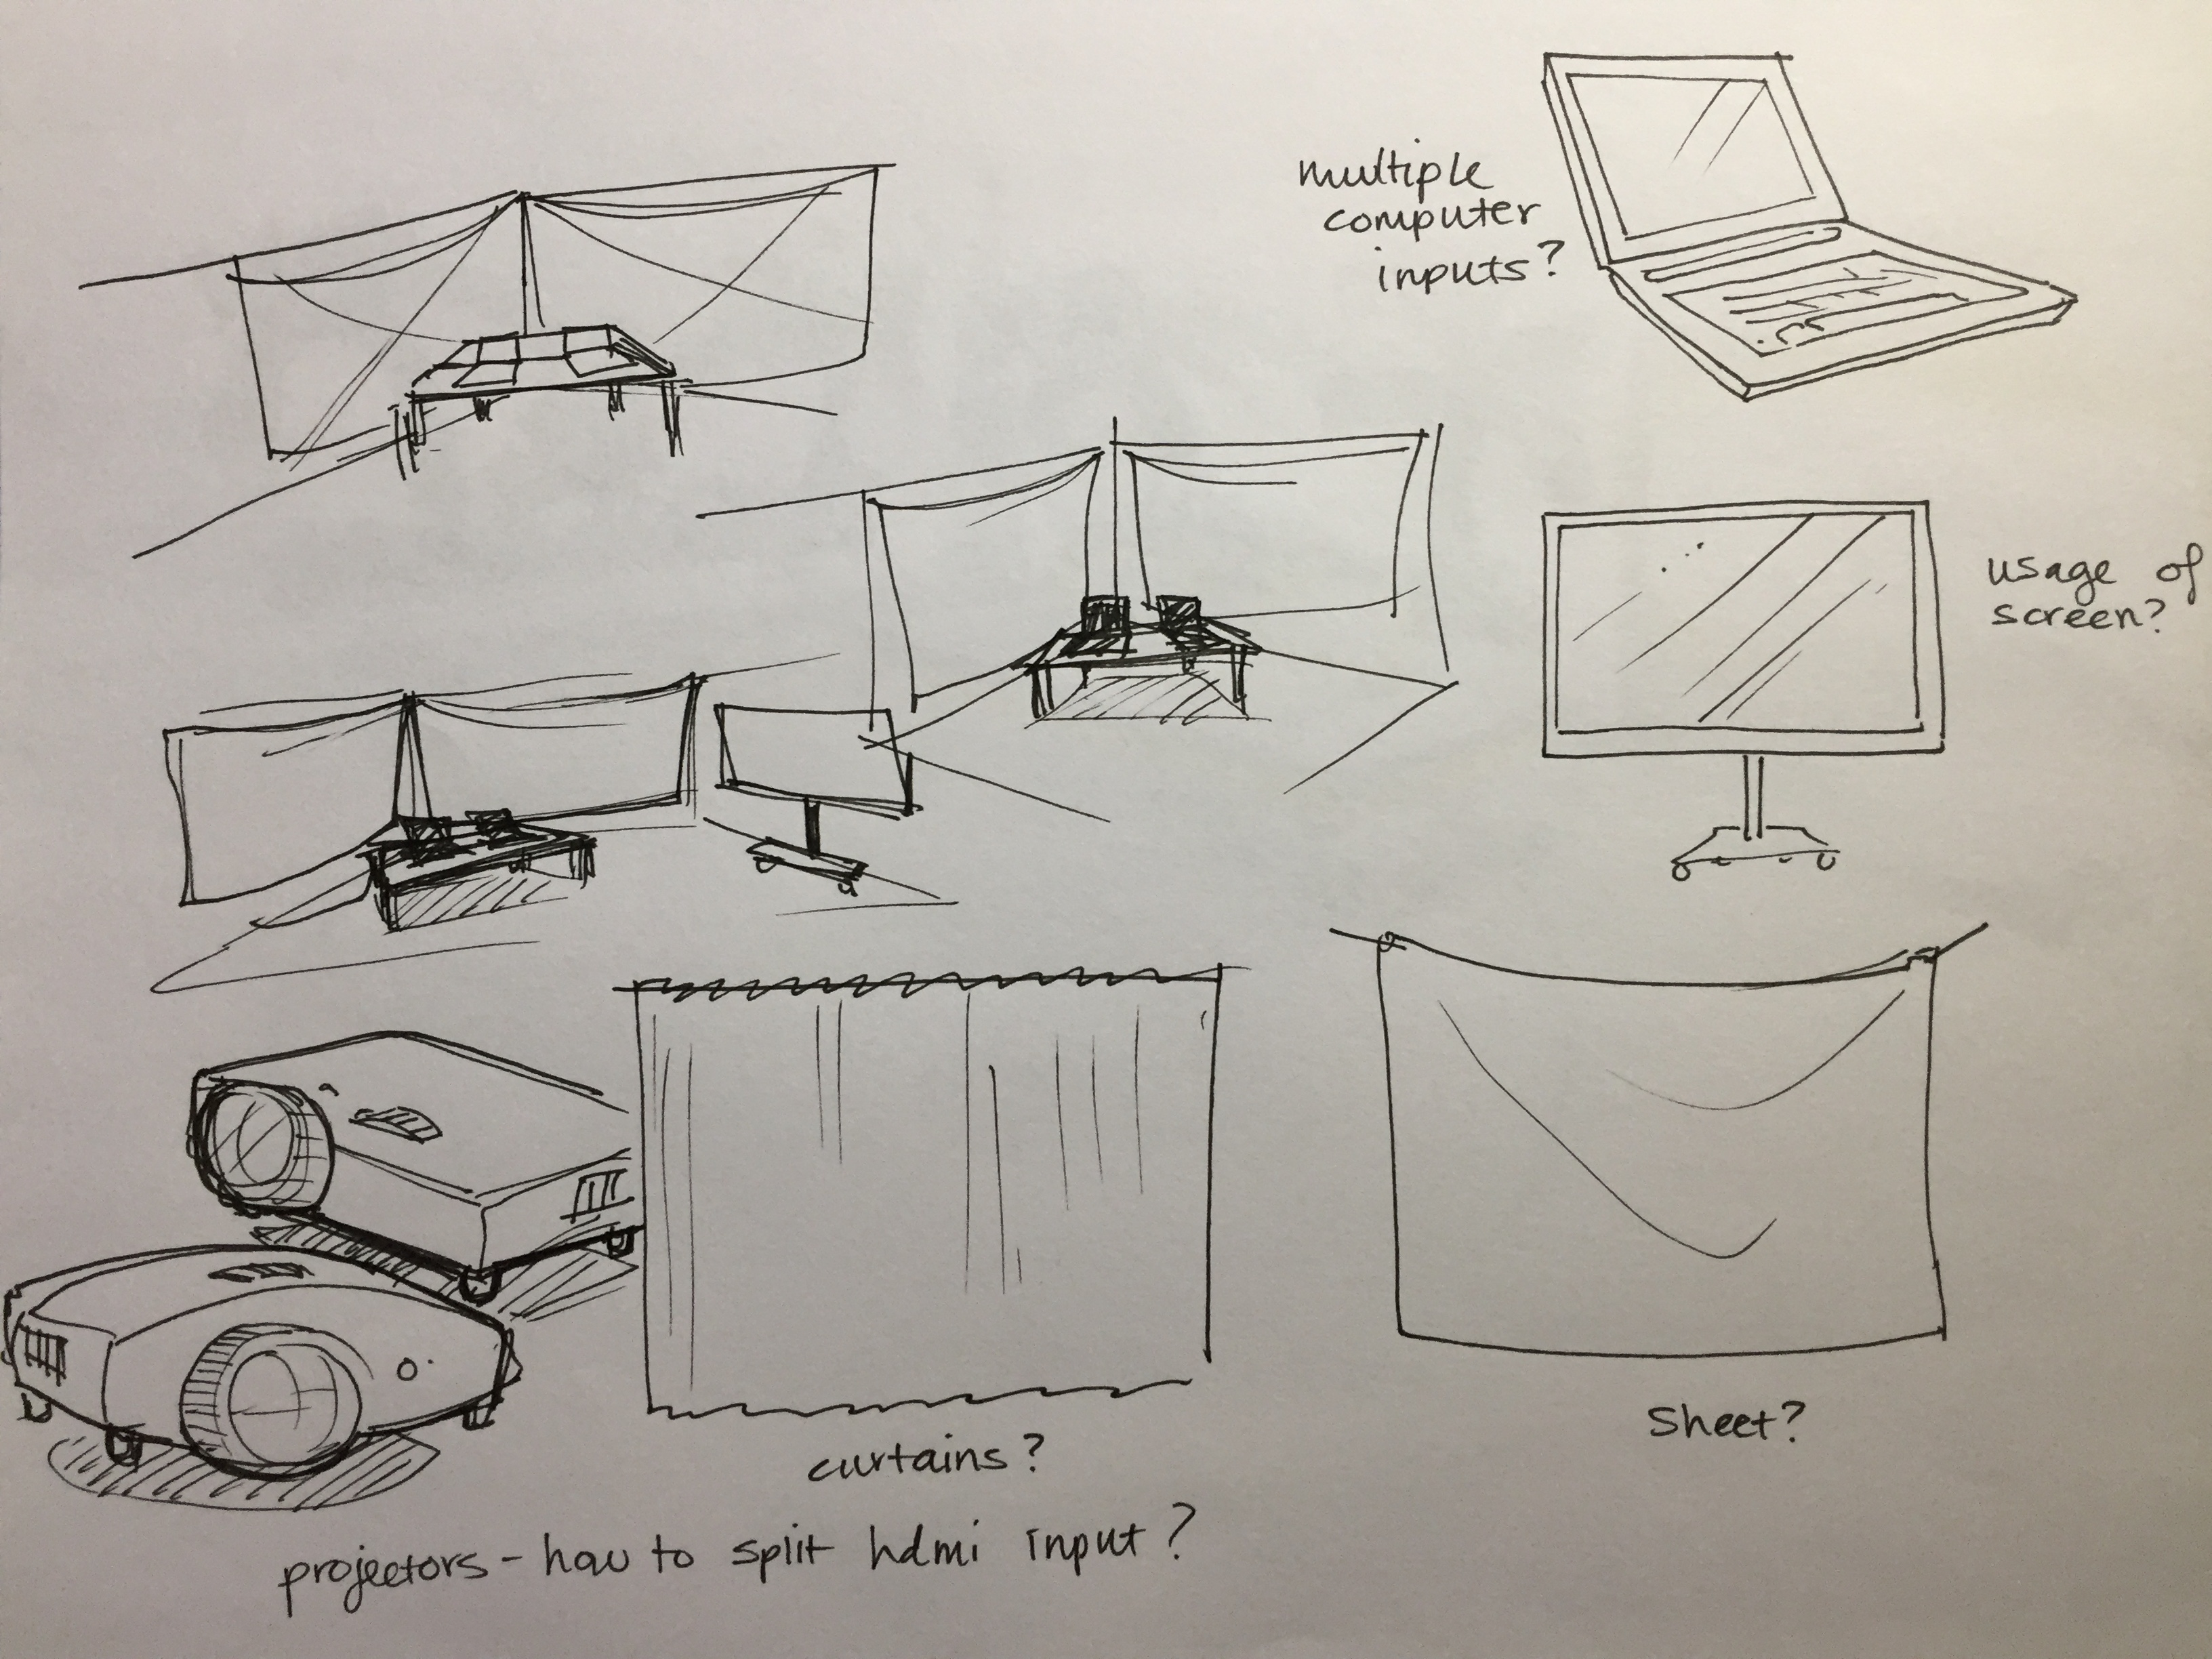 multiple
computer
inputs?
usage of
screen?
curtains?
Sheet?
projectors - how to split hdmi input?